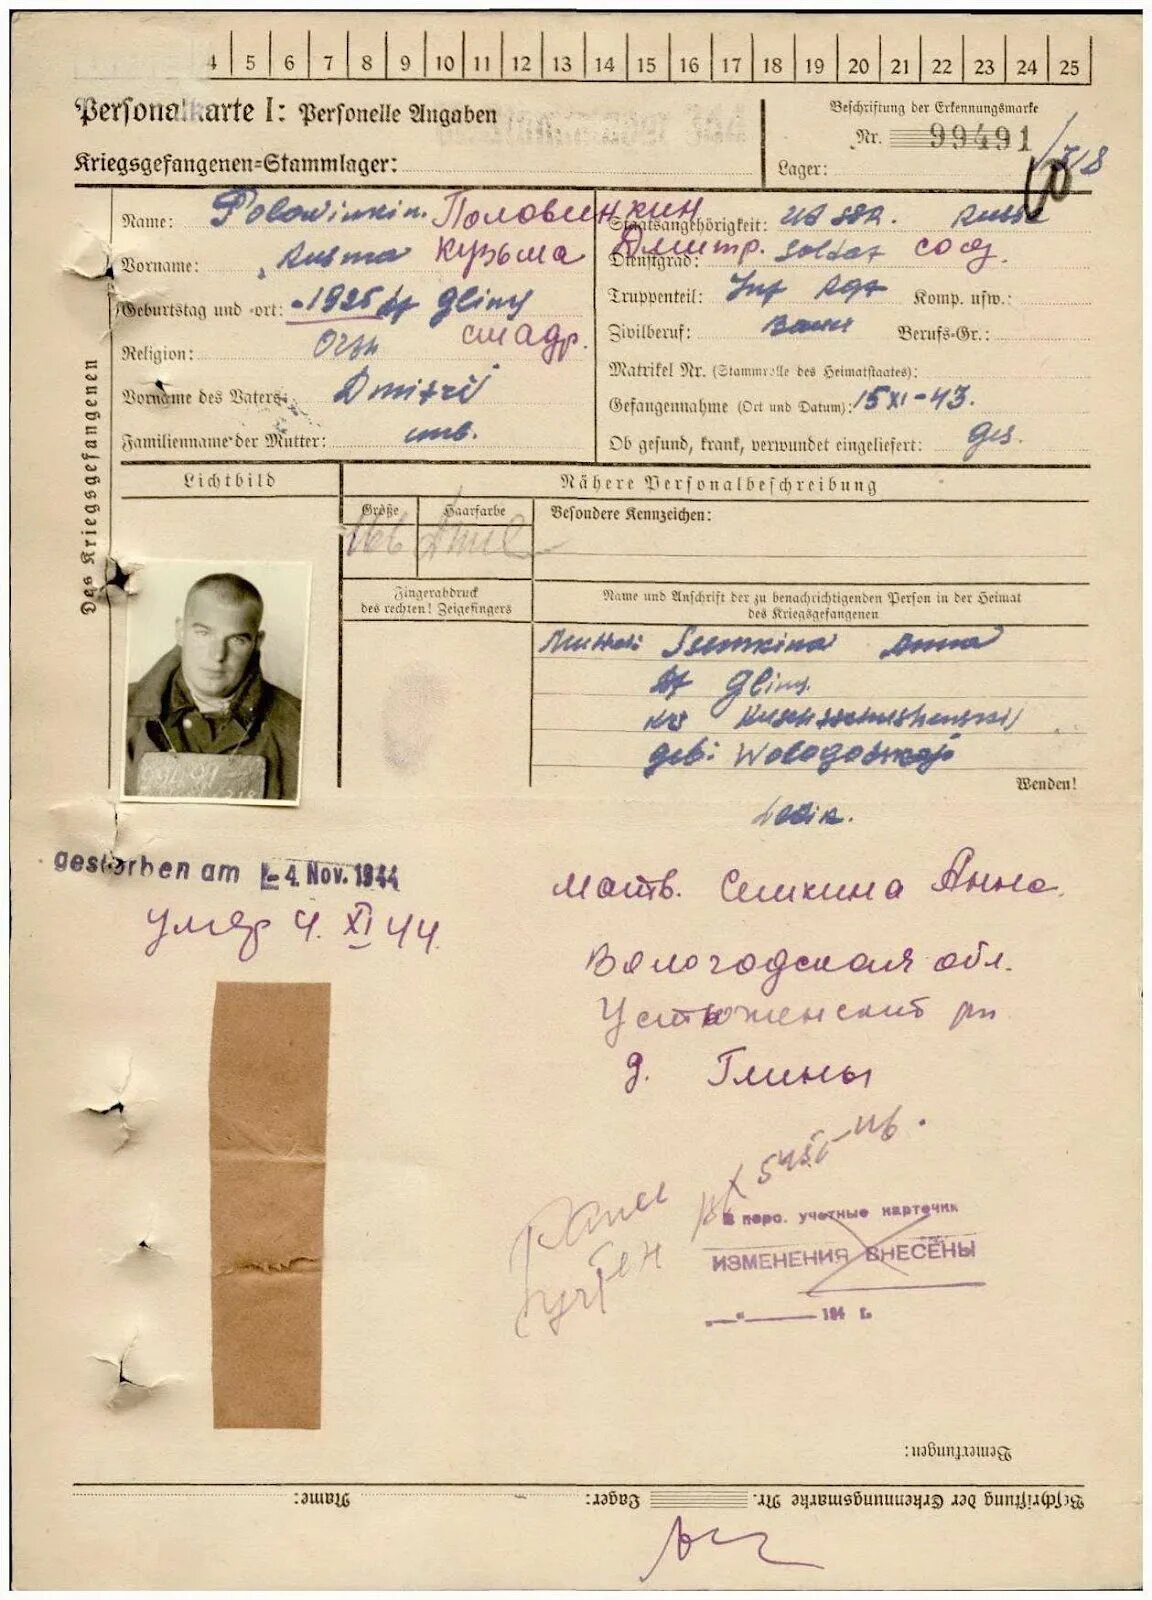 4 5 6 7 8 9 10 11 12 13 14 15 16 17 18 19 20 21 22 23 24 25
Personalkarte I: Personelle Angaben
Beschriftung der Erkennungsmarke
Nr. 99491
Kriegsgefangenen=Stammlager:
Lager:
Des Kriegsgefangenen
Name: Polowinkin. Половинкин
Vorname: Kusma Кузьма Дмитр.
Geburtstag und =ort: -1925 Df Gliny
Religion: Orth
Vorname des Vaters: Dmitri
Familienname der Mutter: unb.
Staatsangehörigkeit: UdSSR. Russe
Dienstgrad: Soldat солд.
Truppenteil: Inf Rgt Komp. usw.:
Zivilberuf: Berufs=Gr.:
Matrikel Nr. (Stammrolle des Heimatstaates):
Gefangennahme (Ort und Datum): 15 XI-43.
Ob gesund, krank, verwundet eingeliefert: ges.
Lichtbild
Nähere Personalbeschreibung
Größe
166
Haarfarbe
Besondere Kennzeichen:
Fingerabdruck
des rechten! Zeigefingers
Name und Anschrift der zu benachrichtigenden Person in der Heimat
des Kriegsgefangenen
Mutter: Ssemkina Anna
Df Gliny
geb: Wologodskaja
Wenden!
gestorben am - 4. Nov. 1944
умер 4. XI 44.
Семкина Анна.
Вологодская обл.
Устюженский рн
д. Глины
В перс. учетные карточки
ИЗМЕНЕНИЯ ВНЕСЕНЫ
„ “ 194 г.
Bemerkungen:
Beschriftung der Erkennungsmarke Nr. Lager: Name: